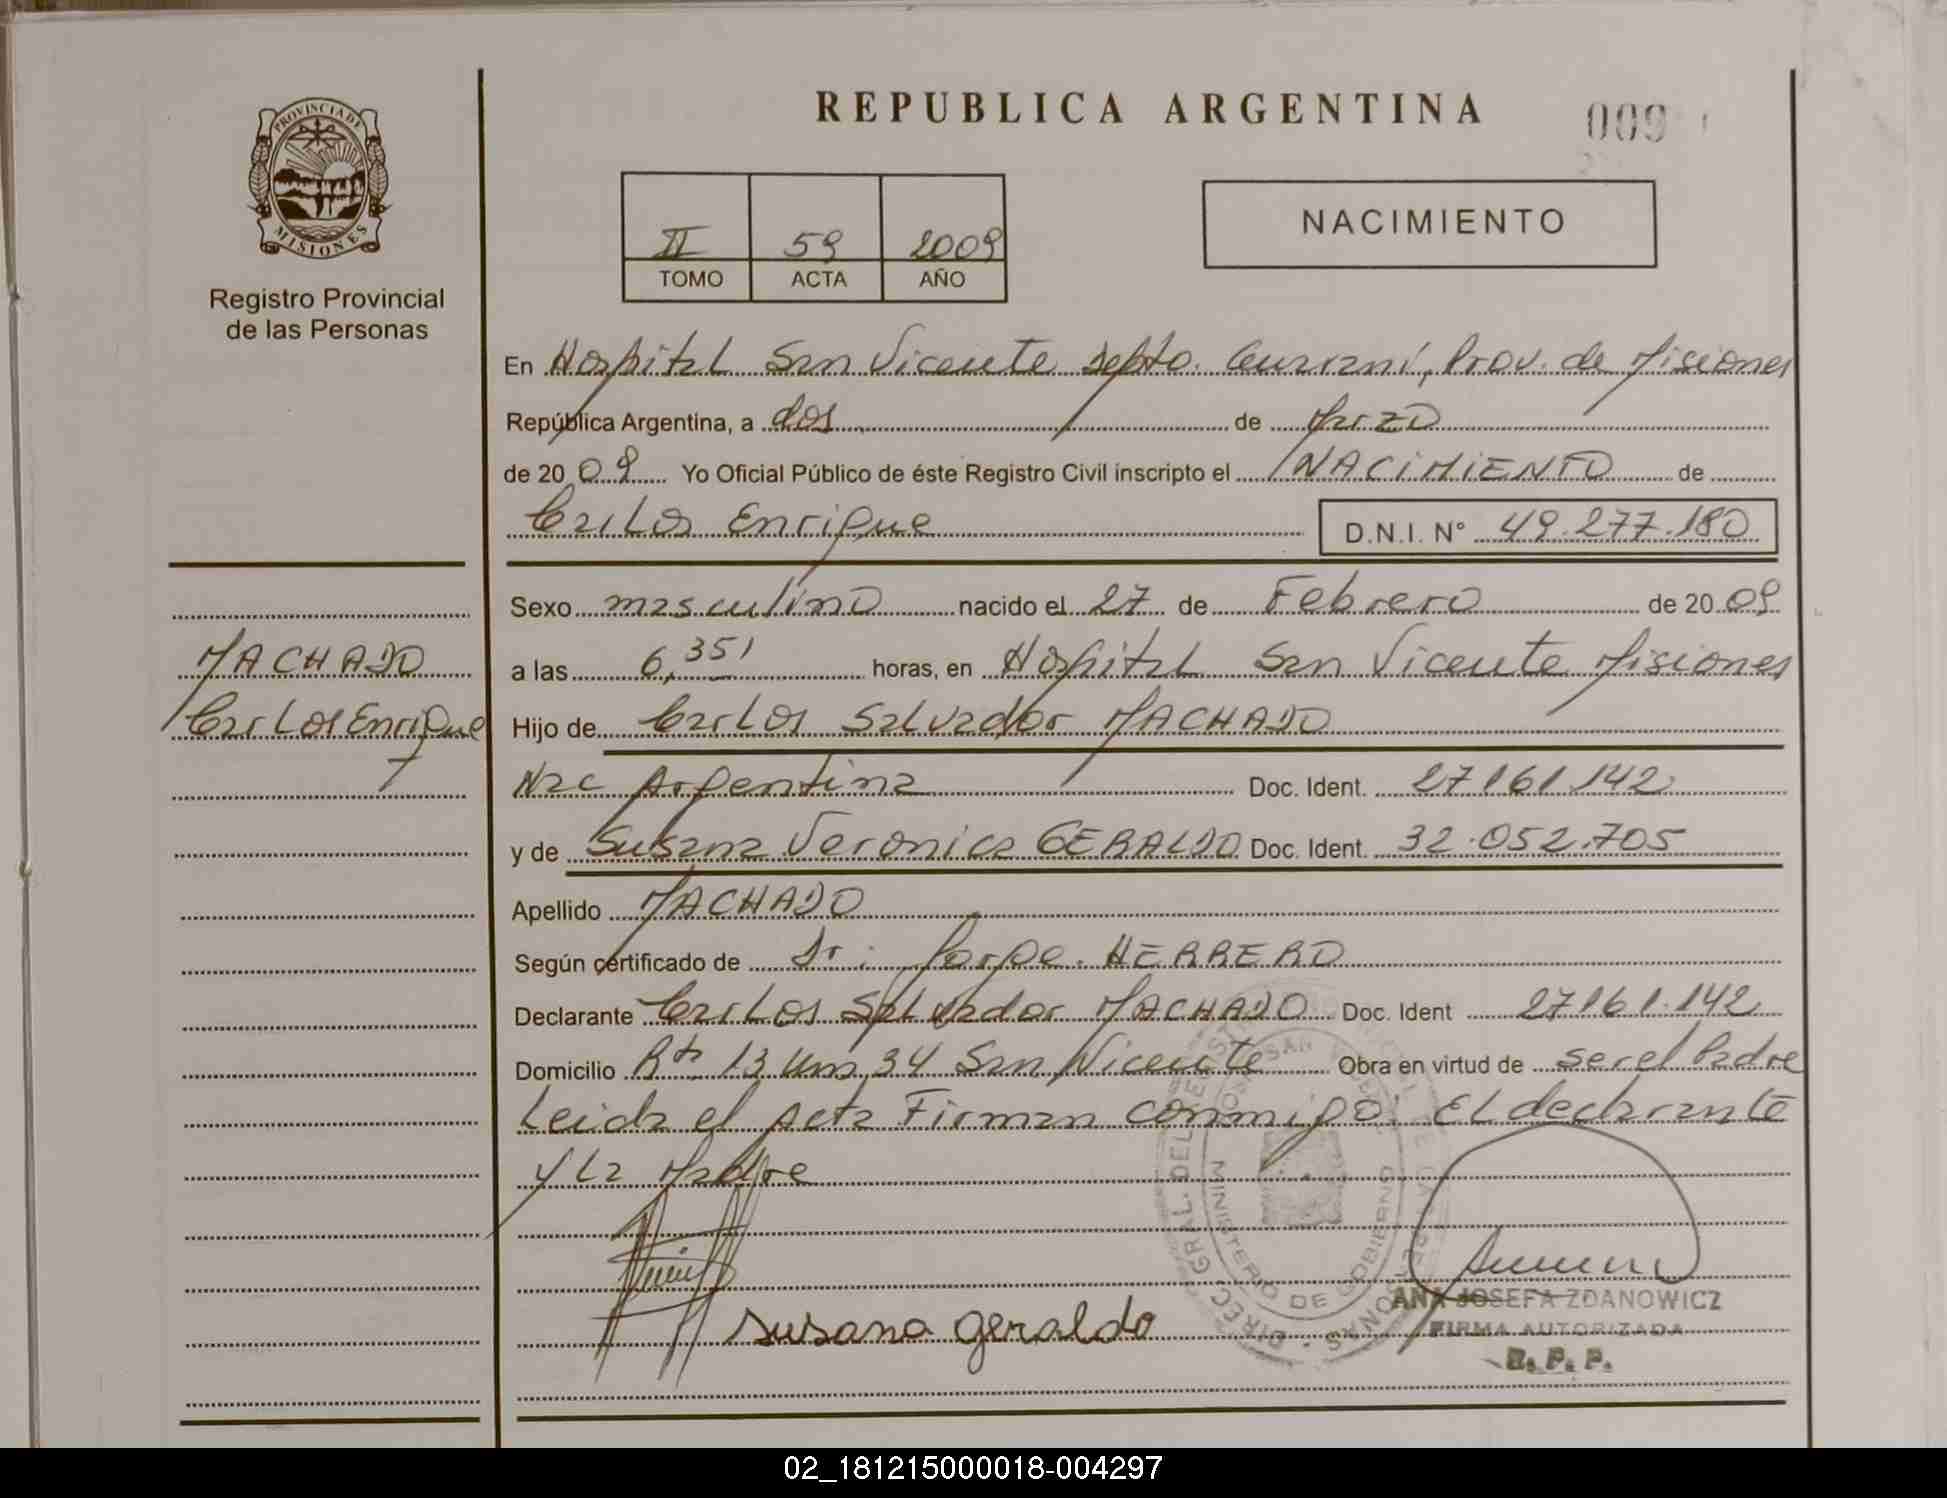 PROVINCIA DE
MISIONES
Registro Provincial
de las Personas
REPUBLICA ARGENTINA
009
II 59 2009
TOMO ACTA AÑO
NACIMIENTO
En Hospital San Vicente Depto. Guarani, Prov. de Misiones
República Argentina, a dos de Marzo
de 2009 Yo Oficial Público de éste Registro Civil inscripto el NACIMIENTO de
Carlos Enrique D.N.I. N° 49.277.180
Sexo masculino nacido el 27 de Febrero de 2009
a las 6,35' horas, en Hospital San Vicente Misiones
MACHADO
Carlos Enrique
Hijo de Carlos Salvador MACHADO
Nac Argentina Doc. Ident. 27161.142
y de Susana Veronica GERALDO Doc. Ident. 32.052.705
Apellido MACHADO
Según certificado de Dr: Jorge. HERRERO
Declarante Carlos Salvador MACHADO Doc. Ident 27161.142
Domicilio Rta 13 Km 34 San Vicente Obra en virtud de ser el Padre
Leida el acta Firman conmigo: El declarante
y La Madre
MINISTERIO DE GOBIERNO
Susana Geraldo
ANA JOSEFA ZDANOWICZ
FIRMA AUTORIZADA
R. P. P.
02_181215000018-004297